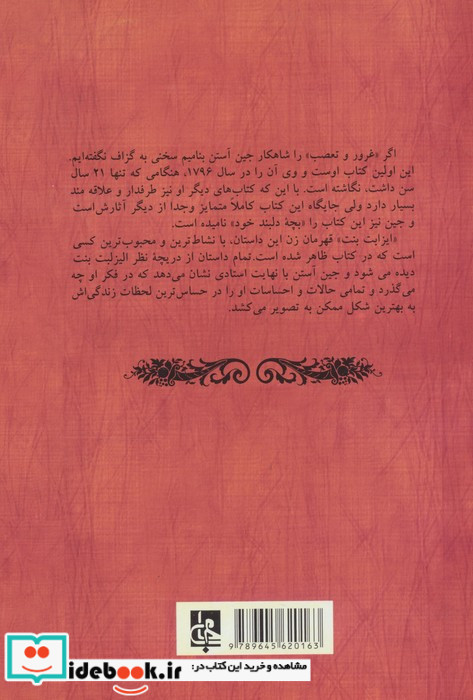 اگر «غرور و تعصب» را شاهکار جین آستن بنامیم سخنی به گزاف نگفته‌ایم.
این اولین کتاب اوست و وی آن را در سال ۱۷۹۶، هنگامی که تنها ۲۱ سال
سن داشت، نگاشته است. با این که کتاب‌های دیگر او نیز طرفدار و علاقه مند
بسیار دارد ولی جایگاه این کتاب کاملاً متمایز وجدا از دیگر آثارش است
و جین نیز این کتاب را «بچهٔ دلبند خود» نامیده است.
«ایزابت بنت» قهرمان زن این داستان، با نشاط‌ترین و محبوب‌ترین کسی
است که در کتاب ظاهر شده است. تمام داستان از دریچهٔ نظر الیزلبت بنت
دیده می شود و جین آستن با نهایت استادی نشان می‌دهد که در فکر او چه
می‌گذرد و تمامی حالات و احساسات او را در حساس‌ترین لحظات زندگی‌اش
به بهترین شکل ممکن به تصویر می‌کشد.
9 789645 620163
idebook.ir
مشاهده و خرید این کتاب در: